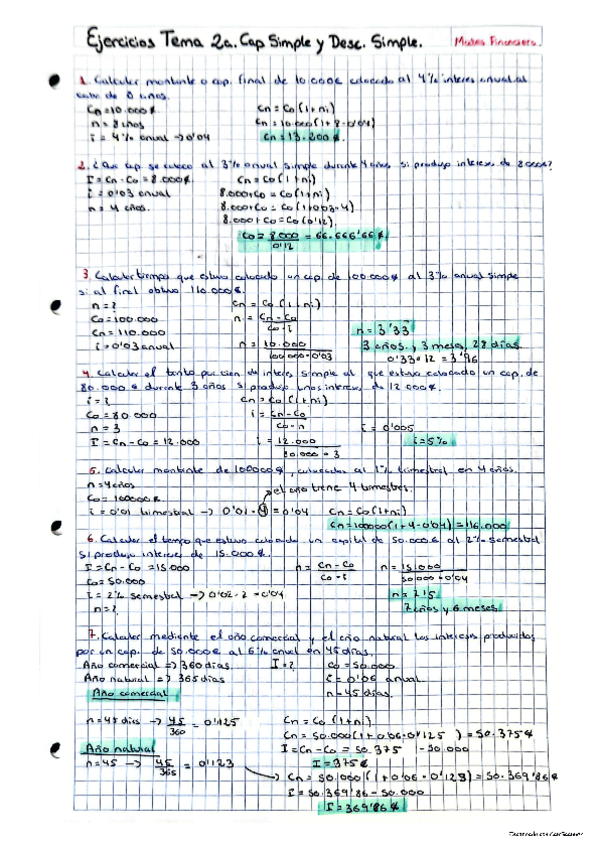 Ejercicios Tema 2a. Cap Simple y Desc. Simple. Mates Financiera.
1. Calcular montante o cap. final de 10.000€ colocado al 4% interes anual al
cabo de 8 años.
Co=10.000€ Cn = Co(1+ni)
n = 8 años Cn = 10.000(1+8·0'04)
i = 4% anual → 0'04 Cn = 13.200€.
2. ¿Que cap. se coloco al 3% anual simple durante 4 años si produjo intereses de 8000€?
I = Cn - Co = 8.000€ Cn = Co(1+ni)
i = 0'03 anual 8.000+Co = Co(1+ni)
n = 4 años. 8.000+Co = Co(1+0'03·4)
8.000+Co = Co(0'12)
Co = 8.000 = 66.666'66€
0'12
3. Calcular tiempo que estuvo colocado un cap. de 100.000€ al 3% anual simple
si al final obtuvo 110.000€.
n = ? Cn = Co(1+ni)
Co = 100.000 n = Cn-Co
Cn = 110.000 Co·i n = 3'33
i = 0'03 anual n = 10.000 3 años, 3 meses, 28 días
100.000·0'03 0'33·12 = 3'96
4. Calcular el tanto por cien de interes simple al que estuvo colocado un cap. de
80.000€ durante 3 años si produjo unos intereses de 12.000€.
i = ? Cn = Co(1+ni)
Co = 80.000 i = Cn-Co
n = 3 Co·n i = 0'005
I = Cn-Co = 12.000 i = 12.000 i = 5%
80.000·3
5. Calcular montante de 100000€, colocados al 1% trimestral en 4 años.
n = 4 años el año tiene 4 trimestres.
Co = 100000€
i = 0'01 trimestral → 0'01·4 = 0'04 Cn = Co(1+ni)
Cn = 100000(1+4·0'04) = 116.000
6. Calcular el tiempo que estuvo colocado un capital de 50.000€ al 2% semestral
si produjo interes de 15.000€.
I = Cn-Co = 15.000 n = Cn-Co n = 15.000
Co = 50.000 Co·i 50.000·0'04
i = 2% semestral → 0'02·2 = 0'04 n = 7'5
n = ? 7 años y 6 meses
7. Calcular mediante el año comercial y el año natural los intereses producidos
por un cap. de 50.000€ al 6% anual en 45 días.
Año comercial => 360 días I = ? Co = 50.000
Año natural => 365 días i = 0'06 anual
Año comercial n = 45 días.
n = 45 días → 45 = 0'125 Cn = Co(1+ni)
360 Cn = 50.000(1+0'06·0'125) = 50.375€
Año natural I = Cn-Co = 50.375 - 50.000
n = 45 → 45 = 0'123 I = 375€
365 Cn = 50.000(1+0'06·0'123) = 50.369'86€
I = 50.369'86 - 50.000
I = 369'86€